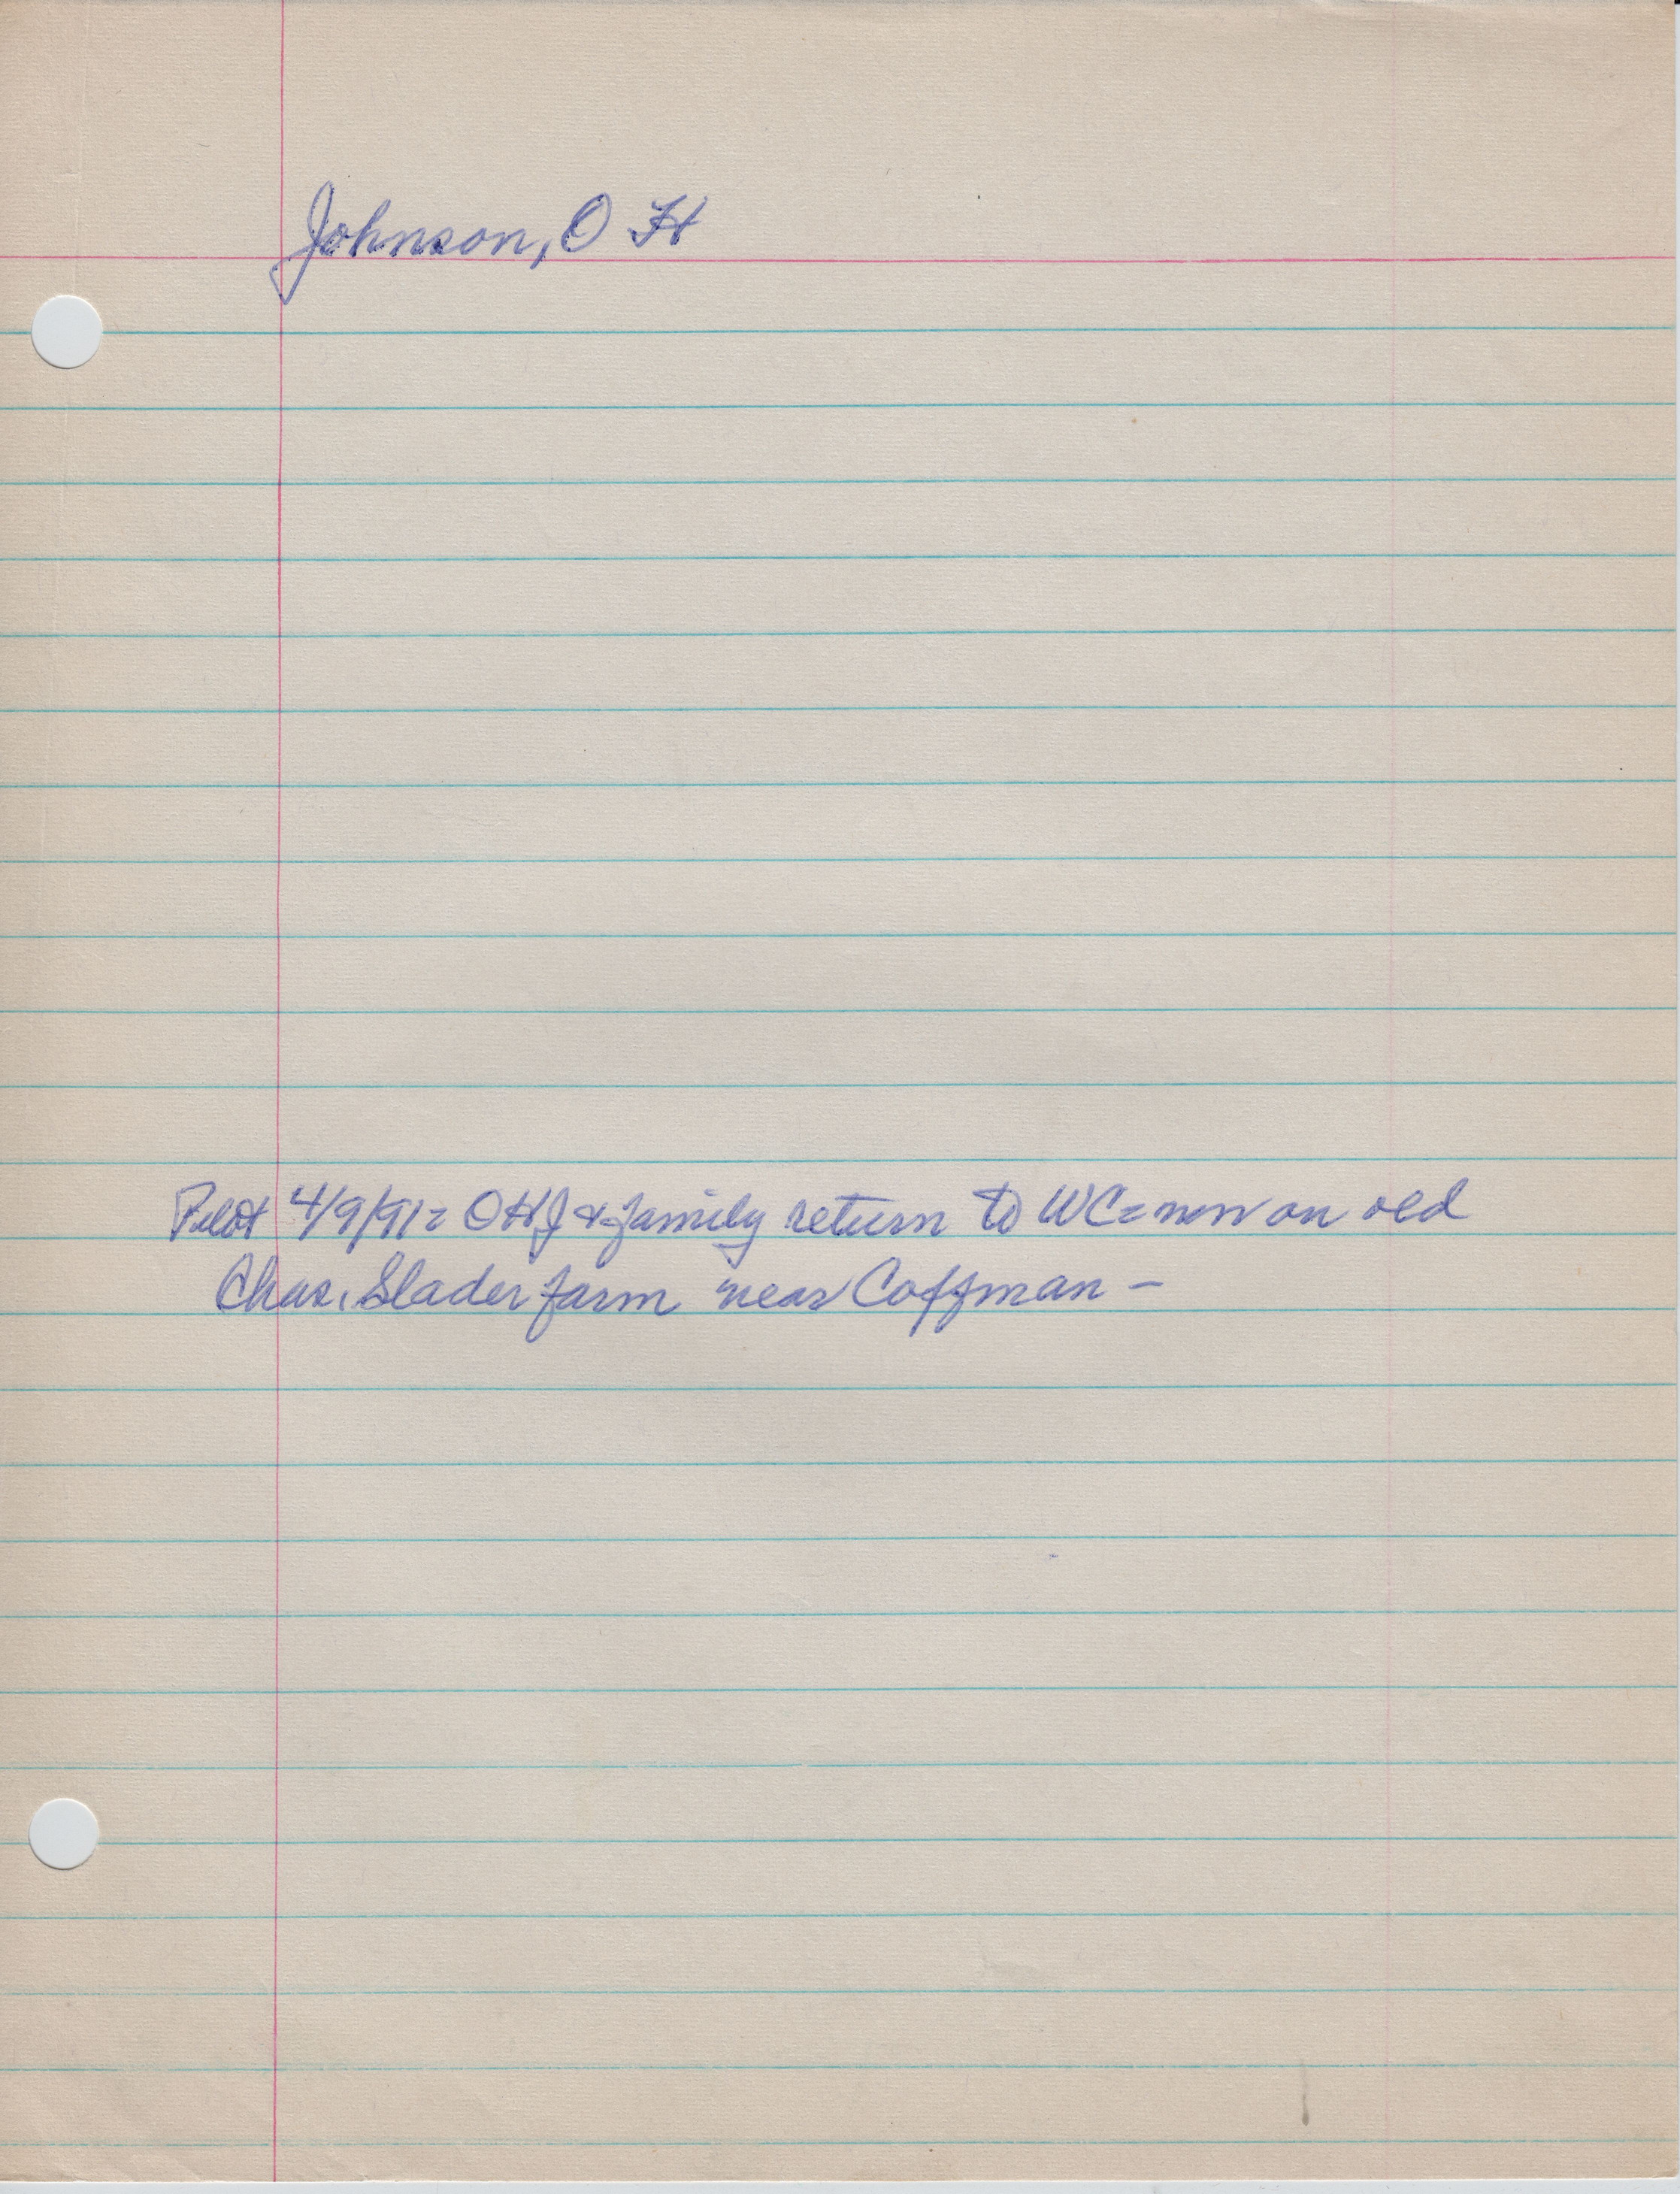 Johnson, O H
Pilot 4/9/91= OHJ & family return to WC= now on old
Chas. Slader farm near Coffman –